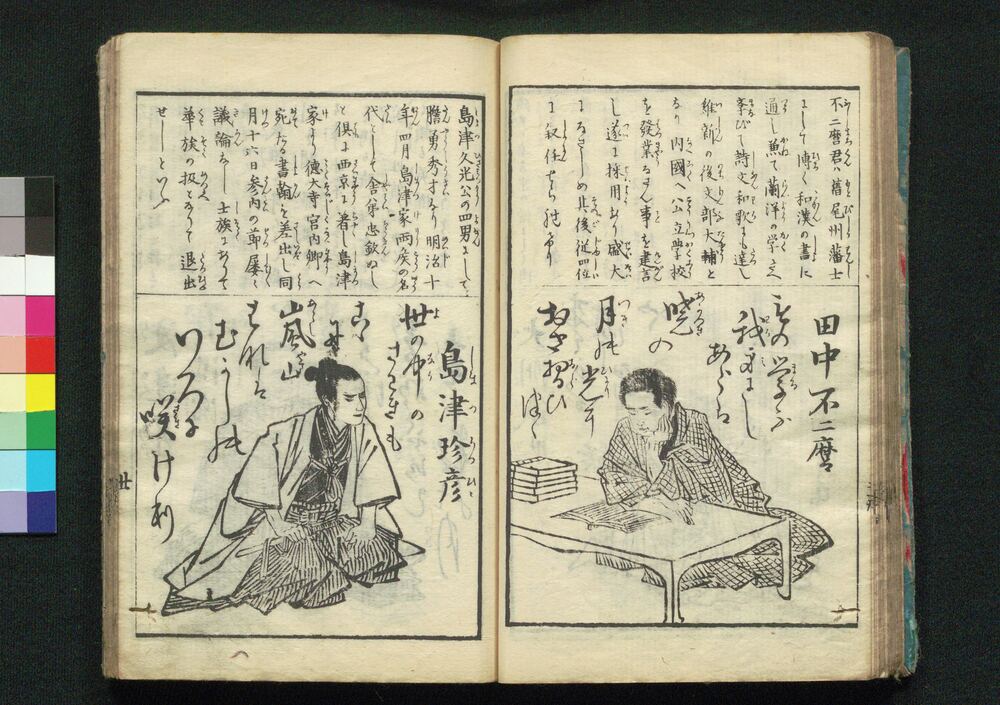 不二麿君ハ舊尾州藩士
にして博く和漢の書に
通し兼て蘭洋の学を
学び詩文和歌にも達し
維新の後文部大輔と
なり内國へ公立学校
を發業なさん事を建言
し遂に採用あり盛大
になさしめ其後従四位
に叙任せられけり
田中不二麿
我身にし
あらる
暁の
月の光を
島津久光公の四男にして
膽勇秀才なり明治十
年四月島津家両侯の名
代として舎弟忠欽ぬし
と倶に西京に着し島津
家より徳大寺宮内卿へ
宛たる書翰を差出し同
月十六日参内の節屡々
議論なし士族にあつて
華族の扱となりて退出
せしといふ
島津珍彦
世の中の
さわぎも
嵐山
むかしの
咲けり
廿